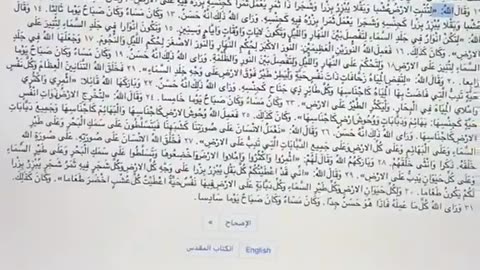 وَقَالَ اللهُ: «لِتُنْبِتِ الأَرْضُ عُشْبًا وَبَقْلًا يُبْزِرُ بِزْرًا وَشَجَرًا ذَا ثَمَرٍ يَعْمَلُ ثَمَرًا كَجِنْسِهِ
وَرَأَى اللهُ ذلِكَ أَنَّهُ حَسَنٌ. ١٣ وَكَانَ مَسَاءٌ وَكَانَ صَبَاحٌ يَوْمًا ثَالِثًا. ١٤ وَقَالَ
اللهُ: «لِتَكُنْ أَنْوَارٌ فِي جَلَدِ السَّمَاءِ لِتَفْصِلَ بَيْنَ النَّهَارِ وَاللَّيْلِ، وَتَكُونَ لآيَاتٍ وَأَوْقَاتٍ وَأَيَّامٍ وَسِنِينٍ. ١٥ وَتَكُونَ أَنْوَارًا فِي جَلَدِ السَّمَاءِ
الأَرْضِ». وَكَانَ كَذلِكَ. ١٦ فَعَمِلَ اللهُ النُّورَيْنِ الْعَظِيمَيْنِ: النُّورَ الأَكْبَرَ لِحُكْمِ النَّهَارِ، وَالنُّورَ الأَصْغَرَ لِحُكْمِ اللَّيْلِ، وَالنُّجُومَ. ١٧ وَجَعَلَهَا اللهُ فِي
الأَرْضِ ١٨ وَلِتَحْكُمَ عَلَى النَّهَارِ وَاللَّيْلِ، وَلِتَفْصِلَ بَيْنَ النُّورِ وَالظُّلْمَةِ. وَرَأَى اللهُ ذلِكَ أَنَّهُ حَسَنٌ. ١٩ وَكَانَ مَسَاءٌ وَكَانَ صَبَاحٌ يَوْمًا
رَابِعًا. ٢٠ وَقَالَ اللهُ: «لِتَفِضِ الْمِيَاهُ زَحَّافَاتٍ ذَاتَ نَفْسٍ حَيَّةٍ، وَلْيَطِرْ طَيْرٌ فَوْقَ الأَرْضِ عَلَى وَجْهِ جَلَدِ السَّمَاءِ». ٢١ فَخَلَقَ اللهُ التَّنَانِينَ الْعِظَامَ، وَكُلَّ نَفْسٍ
حَيَّةٍ تَدِبُّ الَّتِي فَاضَتْ بِهَا الْمِيَاهُ كَأَجْنَاسِهَا، وَكُلَّ طَائِرٍ ذِي جَنَاحٍ كَجِنْسِهِ. وَرَأَى اللهُ ذلِكَ أَنَّهُ حَسَنٌ. ٢٢ وَبَارَكَهَا اللهُ قَائِلًا: «أَثْمِرِي وَاكْثُرِي
وَامْلإِي الْمِيَاهَ فِي الْبِحَارِ. وَلْيَكْثُرِ الطَّيْرُ عَلَى الأَرْضِ». ٢٣ وَكَانَ مَسَاءٌ وَكَانَ صَبَاحٌ يَوْمًا خَامِسًا. ٢٤ وَقَالَ اللهُ: «لِتُخْرِجِ الأَرْضُ ذَوَاتِ أَنْفُسٍ
حَيَّةٍ كَجِنْسِهَا: بَهَائِمَ، وَدَبَّابَاتٍ، وَوُحُوشَ أَرْضٍ كَأَجْنَاسِهَا». وَكَانَ كَذلِكَ. ٢٥ فَعَمِلَ اللهُ وُحُوشَ الأَرْضِ كَأَجْنَاسِهَا، وَالْبَهَائِمَ كَأَجْنَاسِهَا، وَجَمِيعَ دَبَّابَاتِ
الأَرْضِ كَأَجْنَاسِهَا. وَرَأَى اللهُ ذلِكَ أَنَّهُ حَسَنٌ. ٢٦ وَقَالَ اللهُ: «نَعْمَلُ الإِنْسَانَ عَلَى صُورَتِنَا كَشَبَهِنَا، فَيَتَسَلَّطُونَ عَلَى سَمَكِ الْبَحْرِ وَعَلَى طَيْرِ
السَّمَاءِ وَعَلَى الْبَهَائِمِ، وَعَلَى كُلِّ الأَرْضِ، وَعَلَى جَمِيعِ الدَّبَّابَاتِ الَّتِي تَدِبُّ عَلَى الأَرْضِ». ٢٧ فَخَلَقَ اللهُ الإِنْسَانَ عَلَى صُورَتِهِ. عَلَى صُورَةِ اللهِ
خَلَقَهُ. ذَكَرًا وَأُنْثَى خَلَقَهُمْ. ٢٨ وَبَارَكَهُمُ اللهُ وَقَالَ لَهُمْ: «أَثْمِرُوا وَاكْثُرُوا وَامْلأُوا الأَرْضَ، وَأَخْضِعُوهَا، وَتَسَلَّطُوا عَلَى سَمَكِ الْبَحْرِ وَعَلَى طَيْرِ السَّمَاءِ
وَعَلَى كُلِّ حَيَوَانٍ يَدِبُّ عَلَى الأَرْضِ». ٢٩ وَقَالَ اللهُ: «إِنِّي قَدْ أَعْطَيْتُكُمْ كُلَّ بَقْلٍ يُبْزِرُ بِزْرًا عَلَى وَجْهِ كُلِّ الأَرْضِ، وَكُلَّ شَجَرٍ فِيهِ ثَمَرُ شَجَرٍ يُبْزِرُ بِزْرًا
لَكُمْ يَكُونُ طَعَامًا. ٣٠ وَلِكُلِّ حَيَوَانِ الأَرْضِ وَكُلِّ طَيْرِ السَّمَاءِ وَكُلِّ دَبَّابَةٍ عَلَى الأَرْضِ فِيهَا نَفْسٌ حَيَّةٌ، أَعْطَيْتُ كُلَّ عُشْبٍ أَخْضَرَ طَعَامًا». وَكَانَ كَذلِكَ.
٣١ وَرَأَى اللهُ كُلَّ مَا عَمِلَهُ فَإِذَا هُوَ حَسَنٌ جِدًّا. وَكَانَ مَسَاءٌ وَكَانَ صَبَاحٌ يَوْمًا سَادِسًا.
الإصحاح »
الكتاب المقدس English